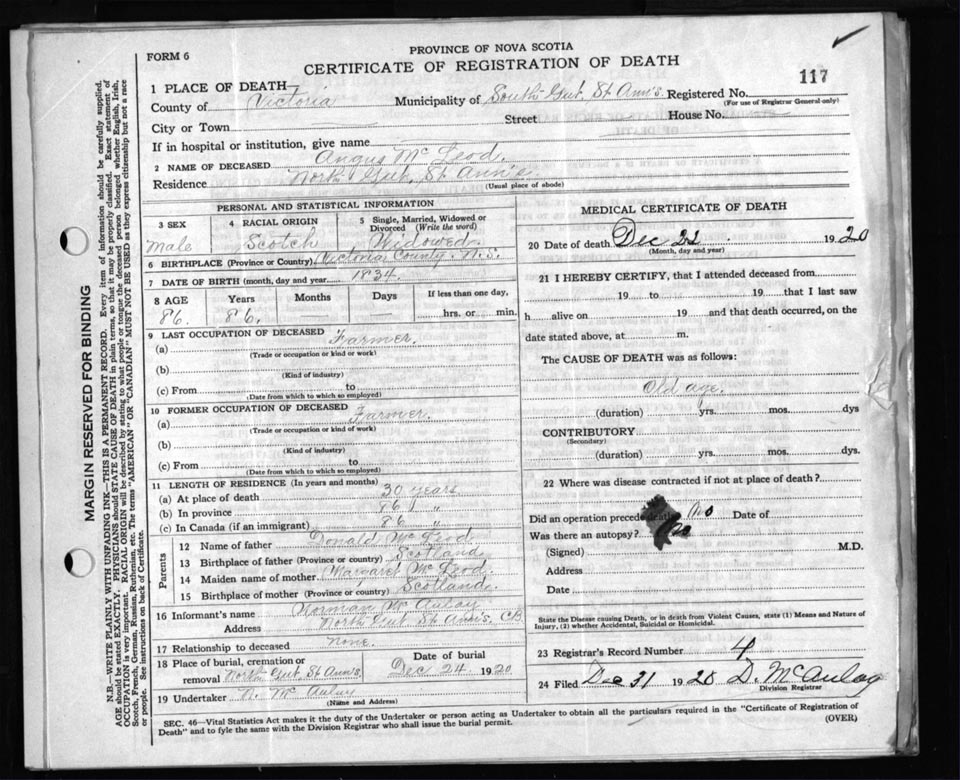 PROVINCE OF NOVA SCOTIA
FORM 6
CERTIFICATE OF REGISTRATION OF DEATH
117
1 PLACE OF DEATH—
County of Victoria Municipality of South Gut St Ann's Registered No.
(For use of Registrar General only)
City or Town Street House No.
If in hospital or institution, give name
2 NAME OF DECEASED Angus Mc Leod.
Residence North Gut St Ann's
(Usual place of abode)
PERSONAL AND STATISTICAL INFORMATION
3 SEX 4 RACIAL ORIGIN 5 Single, Married, Widowed or Divorced (Write the word)
Male Scotch Widowed
6 BIRTHPLACE (Province or Country) Victoria County. N.S.
7 DATE OF BIRTH (month, day and year) 1834.
8 AGE Years Months Days If less than one day,
86. 86. hrs. or min.
9 LAST OCCUPATION OF DECEASED
(a) Farmer.
(Trade or occupation or kind of work)
(b)
(Kind of industry)
(c) From to
(Date from which to which so employed)
10 FORMER OCCUPATION OF DECEASED
(a) Farmer.
(Trade or occupation or kind of work)
(b)
(Kind of industry)
(c) From to
(Date from which to which so employed)
11 LENGTH OF RESIDENCE (In years and months)
(a) At place of death 30 years
(b) In province 86 "
(c) In Canada (if an immigrant) 86 "
Parents
12 Name of father Donald Mc Leod
13 Birthplace of father (Province or country) Scotland
14 Maiden name of mother Margaret Mc Leod.
15 Birthplace of mother (Province or country) Scotland.
16 Informant's name Norman Mc Aulay
Address North Gut St Ann's. C.B.
17 Relationship to deceased None.
18 Place of burial, cremation or removal North Gut St Ann's. Date of burial Dec 24 1920
19 Undertaker N. Mc Aulay
(Name and Address)
MEDICAL CERTIFICATE OF DEATH
20 Date of death Dec 22 1920
(Month, day and year)
21 I HEREBY CERTIFY, that I attended deceased from
19 to 19 that I last saw
h alive on 19 and that death occurred, on
date stated above, at m.
The CAUSE OF DEATH was as follows:
Old age.
(duration) yrs. mos. dys
CONTRIBUTORY
(Secondary)
(duration) yrs. mos. dys.
22 Where was disease contracted if not at place of death?
Did an operation precede death No Date of
Was there an autopsy? No
(Signed) M.D.
Address
Date
State the Disease causing Death, or in death from Violent Causes, state (1) Means and Nature of
Injury, (2) whether Accidental, Suicidal or Homicidal.
23 Registrar's Record Number 4
24 Filed Dec 31 1920 D. McAulay
Division Registrar
SEC. 46—Vital Statistics Act makes it the duty of the Undertaker or person acting as Undertaker to obtain all the particulars required in the "Certificate of Registration of
Death" and to fyle the same with the Division Registrar who shall issue the burial permit.
(OVER)
MARGIN RESERVED FOR BINDING
N.B.—WRITE PLAINLY WITH UNFADING INK—THIS IS A PERMANENT RECORD. Every item of information should be carefully supplied.
AGE should be stated EXACTLY. PHYSICIANS should STATE CAUSE OF DEATH in plain terms, so that it may be properly classified. Exact statement of
OCCUPATION is very important. RACIAL ORIGIN will be described by stating to what people or tongue the deceased person belonged whether English, Irish,
Scotch, French, German, Russian, Ruthenian, etc. The terms "AMERICAN" OR "CANADIAN" MUST NOT BE USED as they express citizenship but not a race
or people. See instructions on back of Certificate.